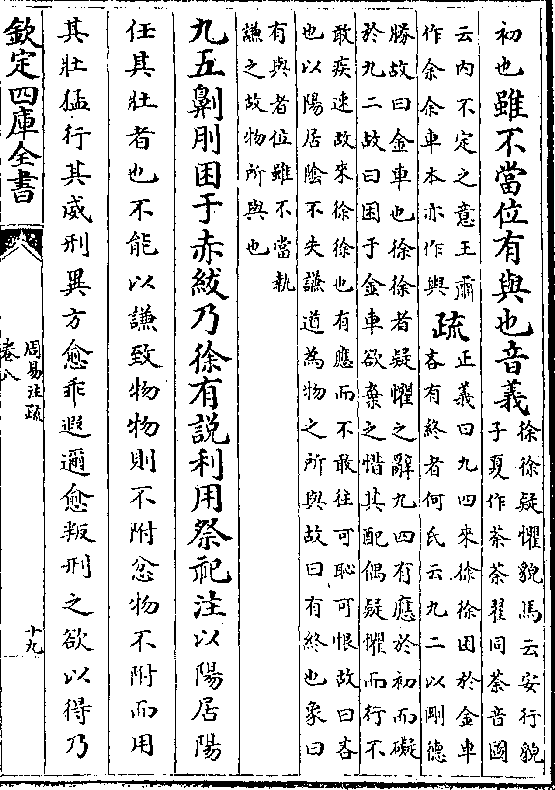 初也雖不當位有與也音義
徐徐疑懼貌馬云安行貌
子夏作荼荼翟同荼音圖
云内不定之意王肅
作余余車本亦作輿
疏
正義曰九四來徐徐困於金車
吝有終者何氏云九二以剛德
勝故曰金車也徐徐者疑懼之辭九四有應於初而礙
於九二故曰困于金車欲棄之惜其配偶疑懼而行不
敢疾速故來徐徐也有應而不敢往可恥可恨故曰吝
也以陽居陰不失謙道為物之所與故曰有終也象曰
有與者位雖不當執
謙之故物所與也
九五劓刖困于赤紱乃徐有説利用祭祀注以陽居陽
任其壯者也不能以謙致物物則不附忿物不附而用
其壯猛行其威刑異方愈乖遐邇愈叛刑之欲以得乃
欽定四庫全書
周易注疏
卷八
十九